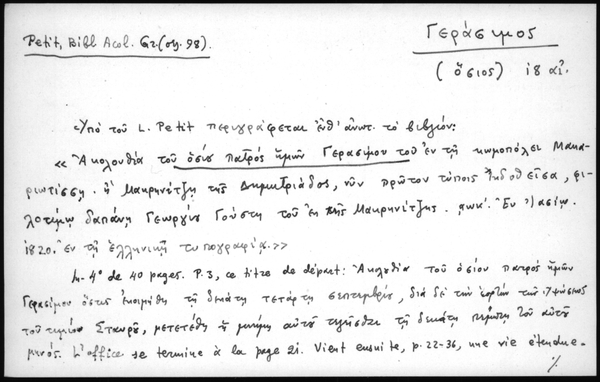 Petit, Bibl Acol. Gr. (σ. 98).
Γεράσιμος
(ὅσιος) 18 αἰ.
Ὑπό τοῦ L. Petit περιγράφεται ἐνθ' ἀνωτ. τό βιβλίον:
«Ἀκολουθία τοῦ ὁσίου πατρός ἡμῶν Γερασίμου τοῦ ἐν τῇ κωμοπόλει Μακα-
ριωτίσσῃ. ἤ Μακρηνίτζῃ τῆς Δημητριάδος, νῦν πρῶτον τύποις ἐκδοθεῖσα, φι-
λοτίμῳ δαπάνῃ Γεωργίου Γούστη τοῦ ἐκ τῆς Μακρηνίτζης. αωκ΄. Ἐν Ἰασίῳ.
1820. Ἐν τῇ ἑλληνικῇ τυπογραφίᾳ.»
In-4° de 40 pages. P. 3, ce titre de départ: Ἀκολουθία τοῦ ὁσίου πατρός ἡμῶν
Γερασίμου ὅστις ἐκοιμήθη τῇ δεκάτῃ τετάρτῃ σεπτεμβρίου, διά δέ τήν ἑορτήν τῆς ὑψώσεως
τοῦ τιμίου Σταυροῦ, μετετέθη ἡ μνήμη αὐτοῦ τῇ δεκάτῃ πέμπτῃ τοῦ αὐτοῦ
μηνός. L'office se termine à la page 21. Vient ensuite, p. 22-36, une vie étendue.
./.